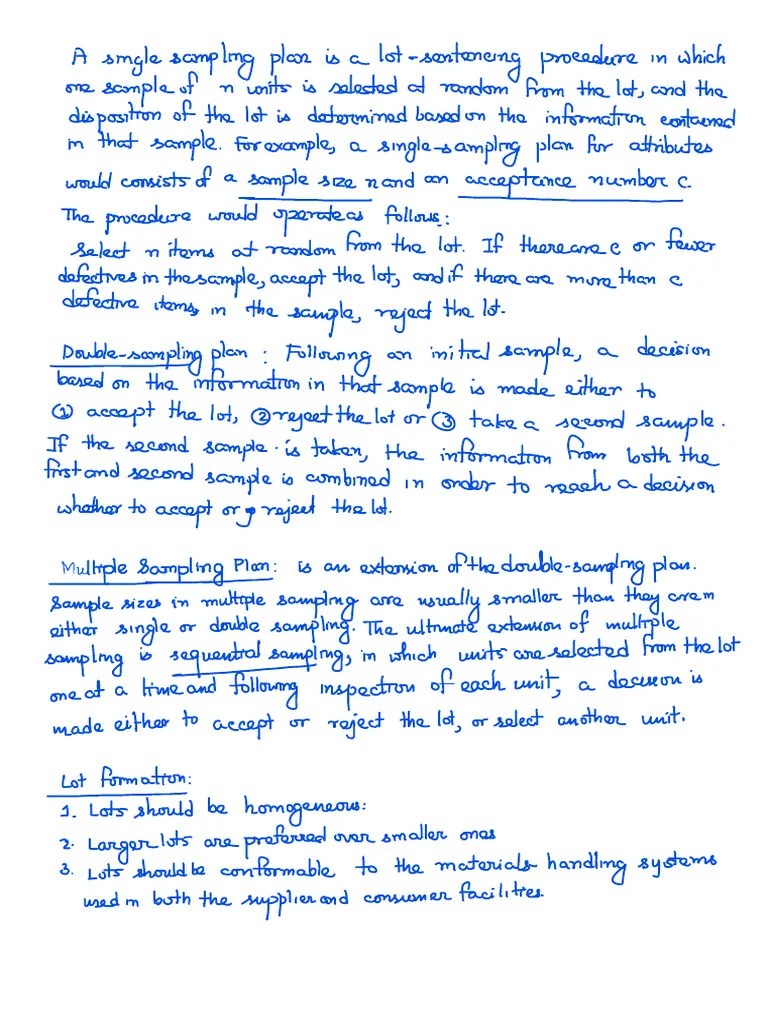 A single sampling plan is a lot-sentencing procedure in which
one sample of n units is selected at random from the lot, and the
disposition of the lot is determined based on the information contained
in that sample. For example, a single-sampling plan for attributes
would consists of a sample size n and an acceptance number c.
The procedure would operate as follows:
Select n items at random from the lot. If there are c or fewer
defectives in the sample, accept the lot, and if there are more than c
defective items in the sample, reject the lot.
Double-sampling plan: Following an initial sample, a decision
based on the information in that sample is made either to
① accept the lot, ② reject the lot or ③ take a second sample.
If the second sample is taken, the information from both the
first and second sample is combined in order to reach a decision
whether to accept or reject the lot.
Multiple Sampling Plan: is an extension of the double-sampling plan.
Sample sizes in multiple sampling are usually smaller than they are in
either single or double sampling. The ultimate extension of multiple
sampling is sequential sampling, in which units are selected from the lot
one at a time and following inspection of each unit, a decision is
made either to accept or reject the lot, or select another unit.
Lot formation:
1. Lots should be homogeneous:
2. Larger lots are preferred over smaller ones
3. Lots should be conformable to the materials-handling systems
used in both the supplier and consumer facilities.